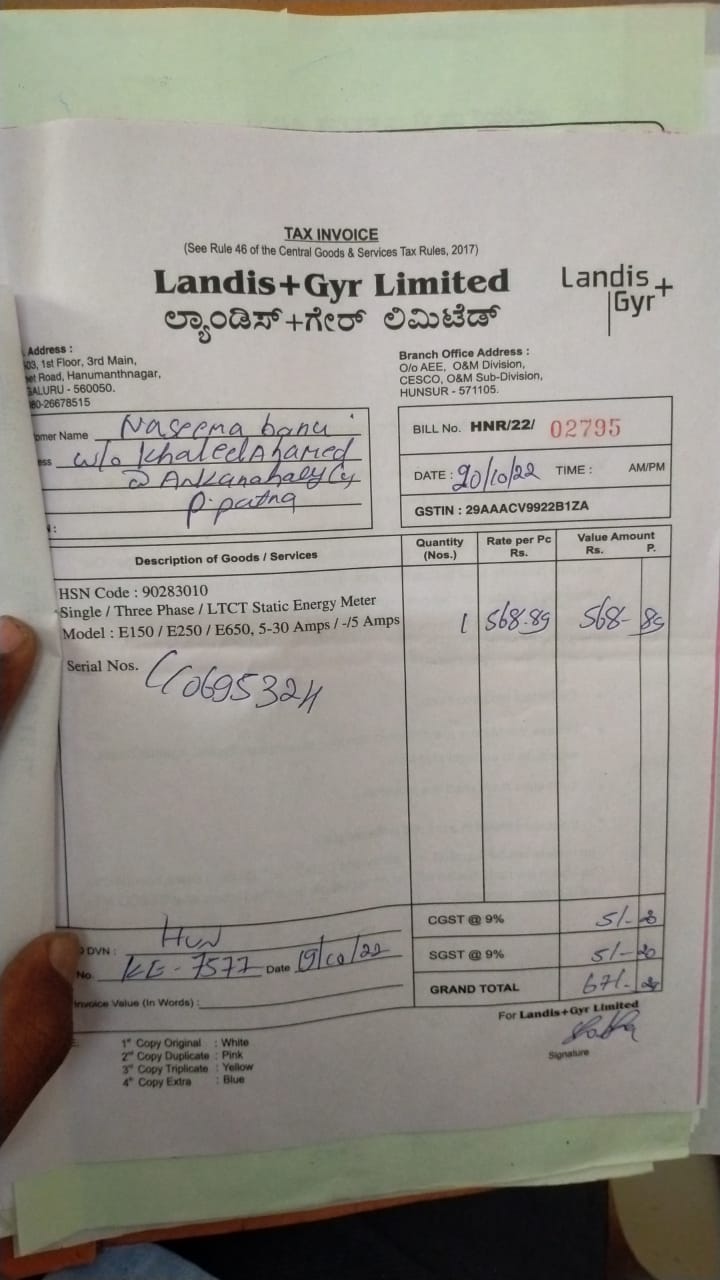 TAX INVOICE
(See Rule 46 of the Central Goods & Services Tax Rules, 2017)
Landis+Gyr Limited
ಲ್ಯಾಂಡಿಸ್+ಗೇರ್ ಲಿಮಿಟೆಡ್
Landis
Gyr+
Address :
03, 1st Floor, 3rd Main,
et Road, Hanumanthnagar,
GALURU - 560050.
080-26678515
Branch Office Address :
O/o AEE, O&M Division,
CESCO, O&M Sub-Division,
HUNSUR - 571105.
omer Name Naseema banu
ess w/o Khaled Ahamed
P. patna
BILL No. HNR/22/ 02795
DATE : 20/10/22 TIME : AM/PM
GSTIN : 29AAACV9922B1ZA
Description of Goods / Services
Quantity (Nos.)
Rate per Pc Rs.
Value Amount Rs. P.
HSN Code : 90283010
Single / Three Phase / LTCT Static Energy Meter
Model : E150 / E250 / E650, 5-30 Amps / -/5 Amps 1 568.89 568- 89
Serial Nos. 0695324
CGST @ 9% 51-20
SGST @ 9% 51-20
GRAND TOTAL 671-
DVN : HUN
No. KE-7577 Date 19/10/22
Invoice Value (In Words) :
For Landis+Gyr Limited
Signature
1st Copy Original : White
2nd Copy Duplicate : Pink
3rd Copy Triplicate : Yellow
4th Copy Extra : Blue